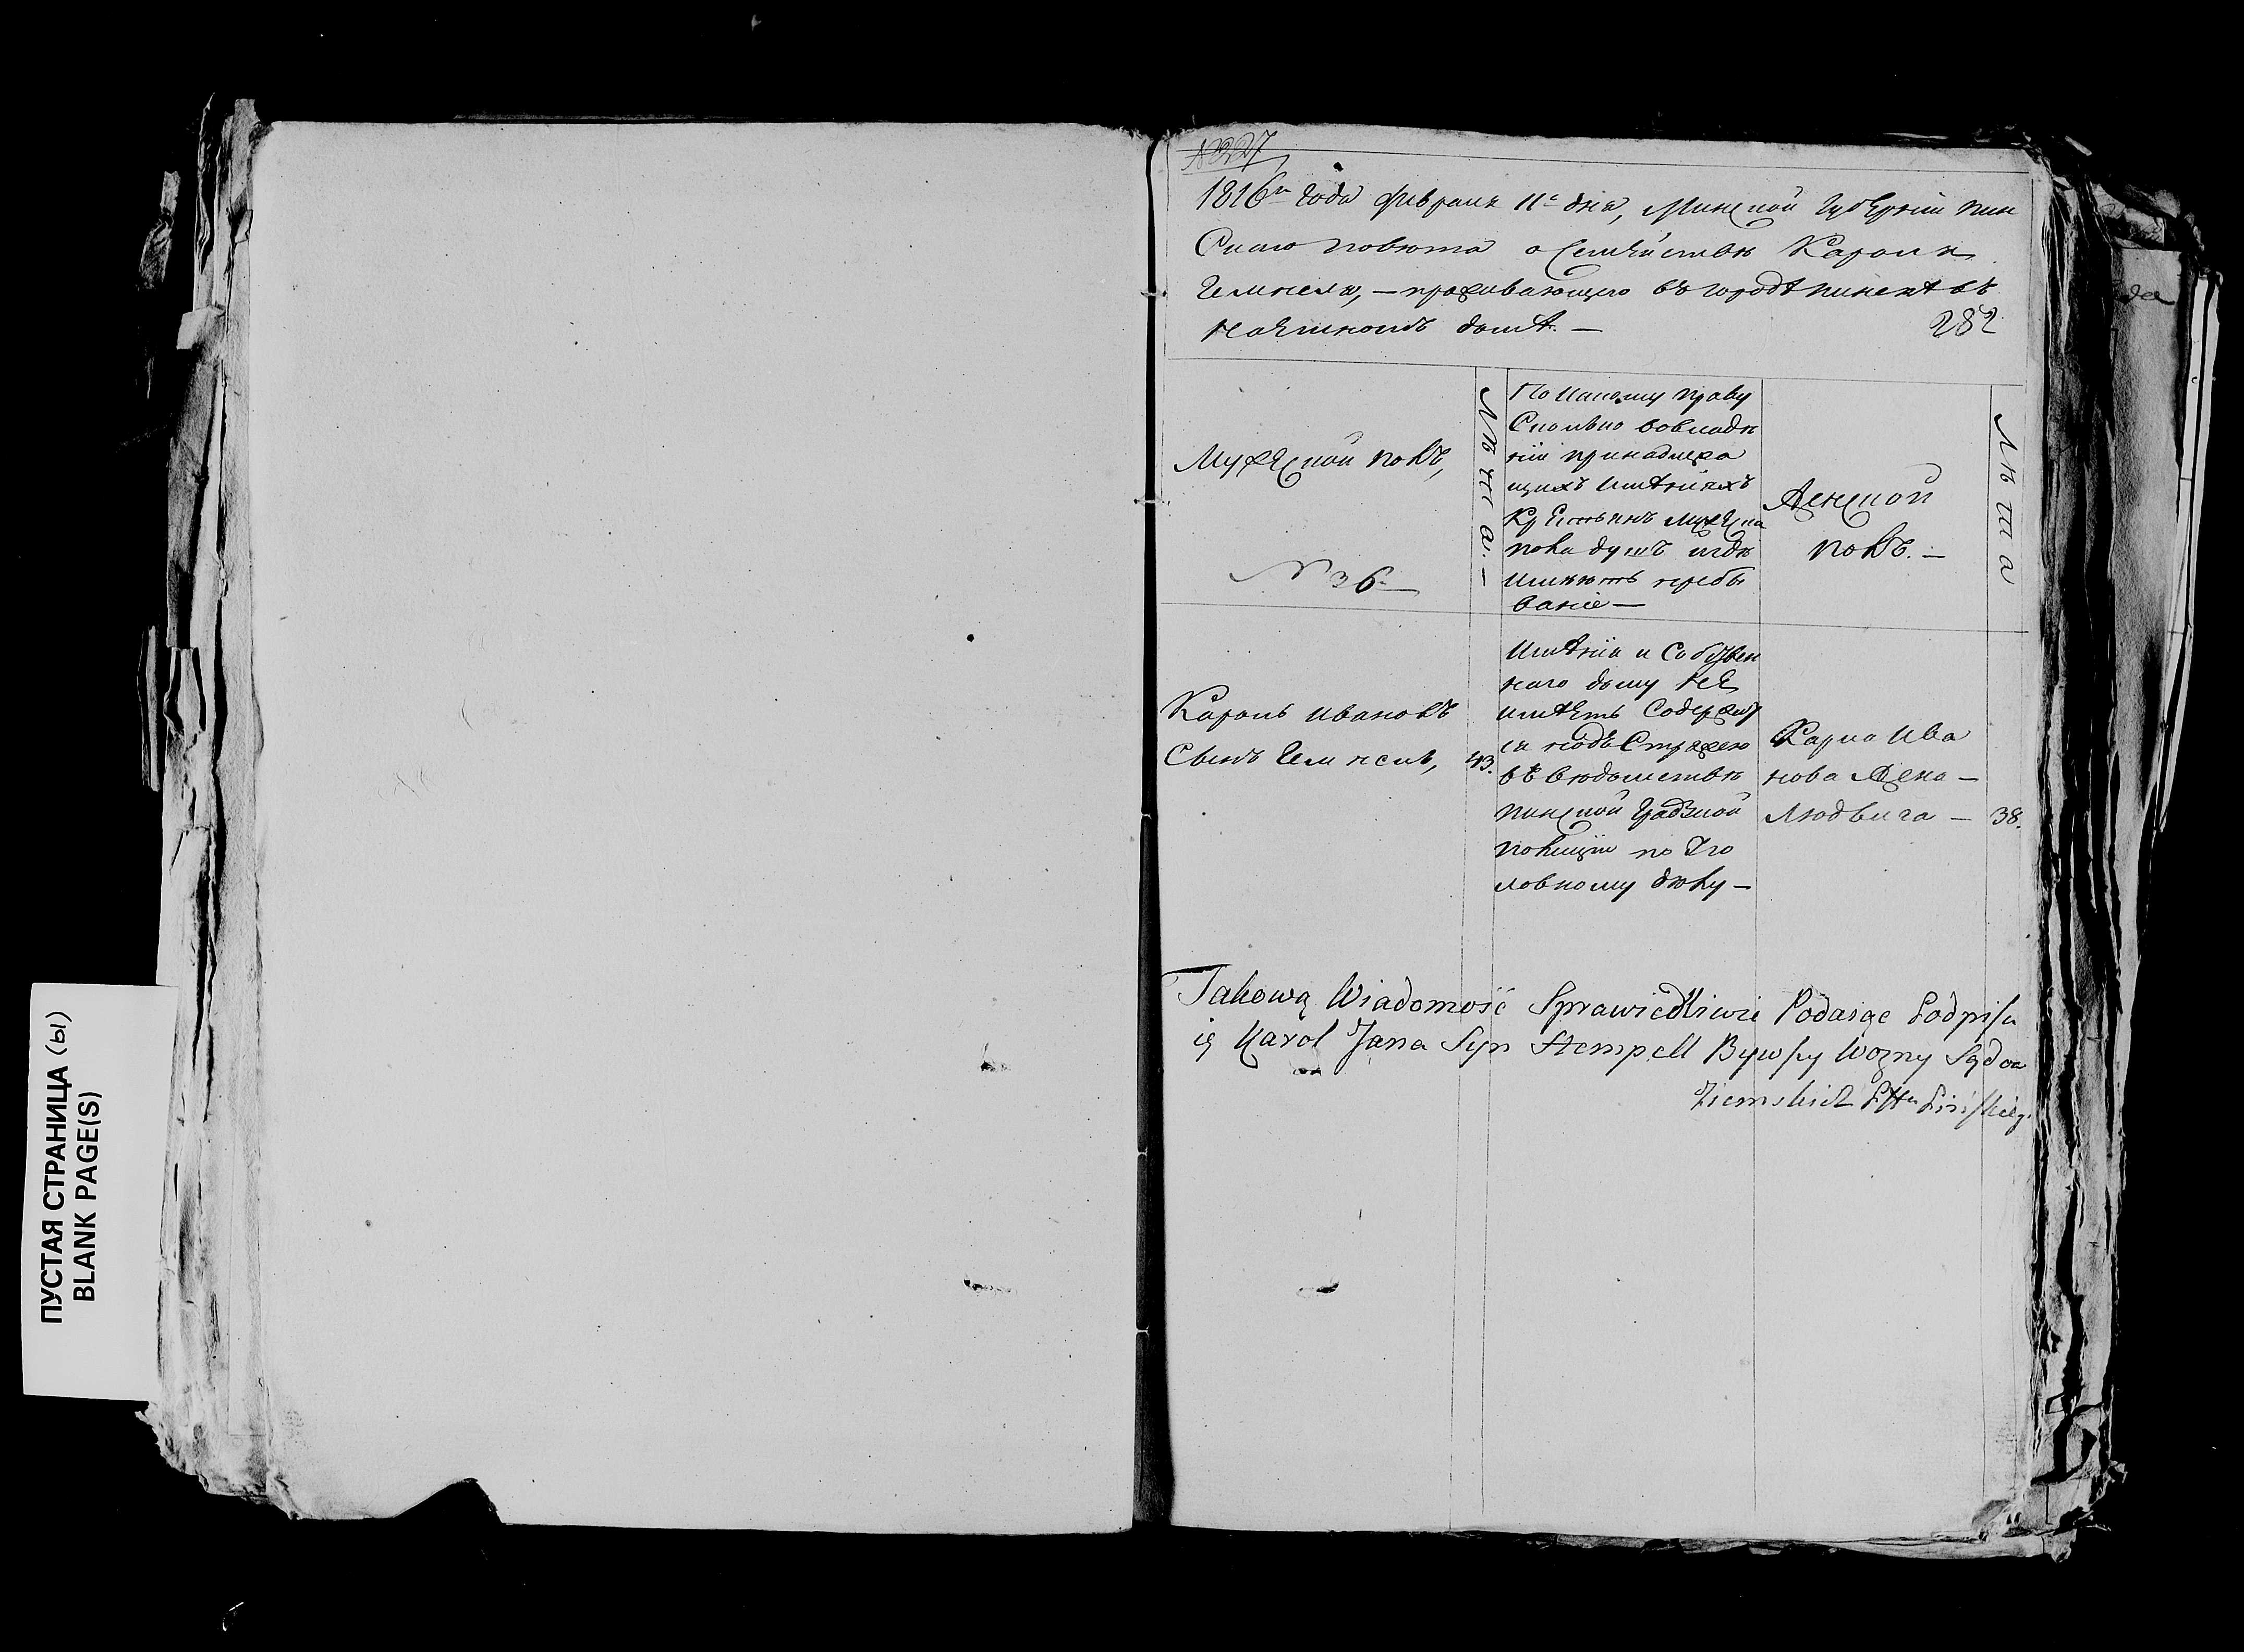 ПУСТАЯ СТРАНИЦА (Ы)
BLANK PAGE(S)
1816го Года Февраля 11е дня, Минской Губерніи Пин
скаго повѣта о Семействѣ Кароля
проживающаго въ городѣ Пинскѣ въ
наемномъ домѣ. —
282
Мужеской полъ,
№ 36 —
Лѣта. —
По какому праву
Сколько вовладѣ
ніи принадлежа
щихъ имѣніяхъ
Крестьянъ мужеска
пола душъ игдѣ
имѣютъ пребы
ваніе —
Женской
полъ. —
Лѣта
Кароль Ивановъ
Сынъ
43.
Имѣнія и Собствен
наго дому не
имѣетъ Содержит
ся подъ Стражею
въ вѣдомствѣ
Пинской Градской
Полиціи по Уго
ловному дѣлу —
Карла Ива
нова Жена —
Людвига — 38.
Takową Wiadomość Sprawiedliwie Podaiąc Podpisu
ię Karol Jana Syn Stempell Bywszy Wozny Sądow
Ziemskich Pttu Pińskieg.